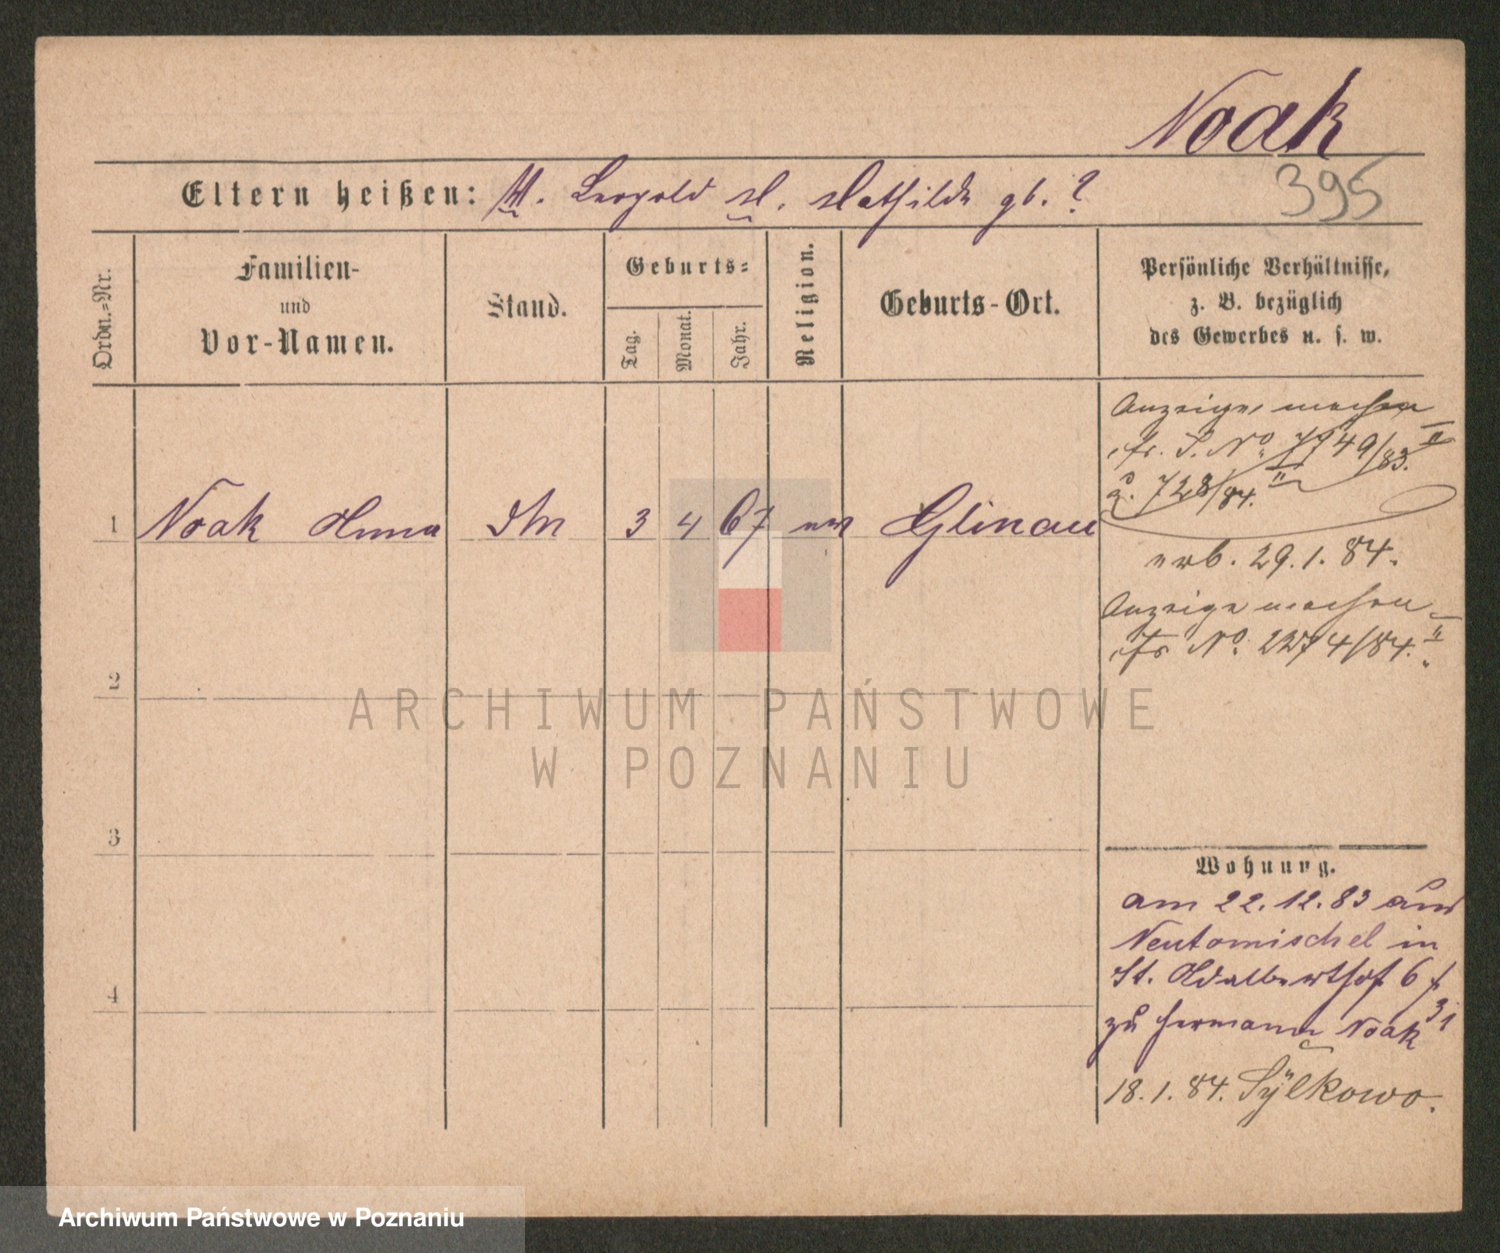 Noak
395
Eltern heißen: Leopold Mathilde gb. ?
Ordn.-Nr.
Familien-
und
Vor-Namen.
Stand.
Geburts-
Tag.
Monat.
Jahr.
Religion.
Geburts-Ort.
Persönliche Verhältnisse,
z. B. bezüglich
des Gewerbes u. s. w.
1 Noak Anna 3 4 67 Glinau
Anzeige machen
No. 7949/83. II
728/84. II
29.1.84.
Anzeige machen
No. 2274/84. II
2
3
4
Wohnung.
am 22.12.83 aus
Neutomischel in
St. Adalberthof 6
zu Hermann Noak 31
18.1.84. Sÿlkowo.
ARCHIWUM PAŃSTWOWE
W POZNANIU
Archiwum Państwowe w Poznaniu